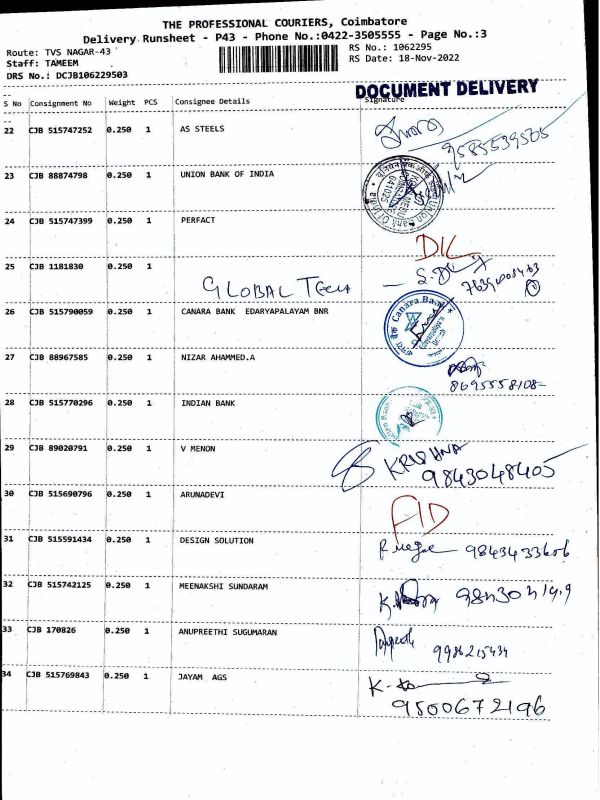 THE PROFESSIONAL COURIERS, Coimbatore
Delivery Runsheet - P43 - Phone No.:0422-3505555 - Page No.:3
Route: TVS NAGAR-43
RS No.: 1062295
Staff: TAMEEM
RS Date: 18-Nov-2022
DRS No.: DCJB106229503
DOCUMENT DELIVERY
S No Consignment No Weight PCS Consignee Details Signature
22 CJB 515747252 0.250 1 AS STEELS
9585539505
23 CJB 88874798 0.250 1 UNION BANK OF INDIA
641025
24 CJB 515747399 0.250 1 PERFACT
D/L
25 CJB 1181830 0.250 1
GLOBAL Tech
26 CJB 515790059 0.250 1 CANARA BANK EDARYAPALAYAM BNR
Canara Bank
27 CJB 88967585 0.250 1 NIZAR AHAMMED.A
8695558108
28 CJB 515770296 0.250 1 INDIAN BANK
29 CJB 89020791 0.250 1 V MENON
KRISHNA
9843048405
30 CJB 515690796 0.250 1 ARUNADEVI
31 CJB 515591434 0.250 1 DESIGN SOLUTION
9843433606
32 CJB 515742125 0.250 1 MEENAKSHI SUNDARAM
33 CJB 170826 0.250 1 ANUPREETHI SUGUMARAN
34 CJB 515769843 0.250 1 JAYAM AGS
9500672196